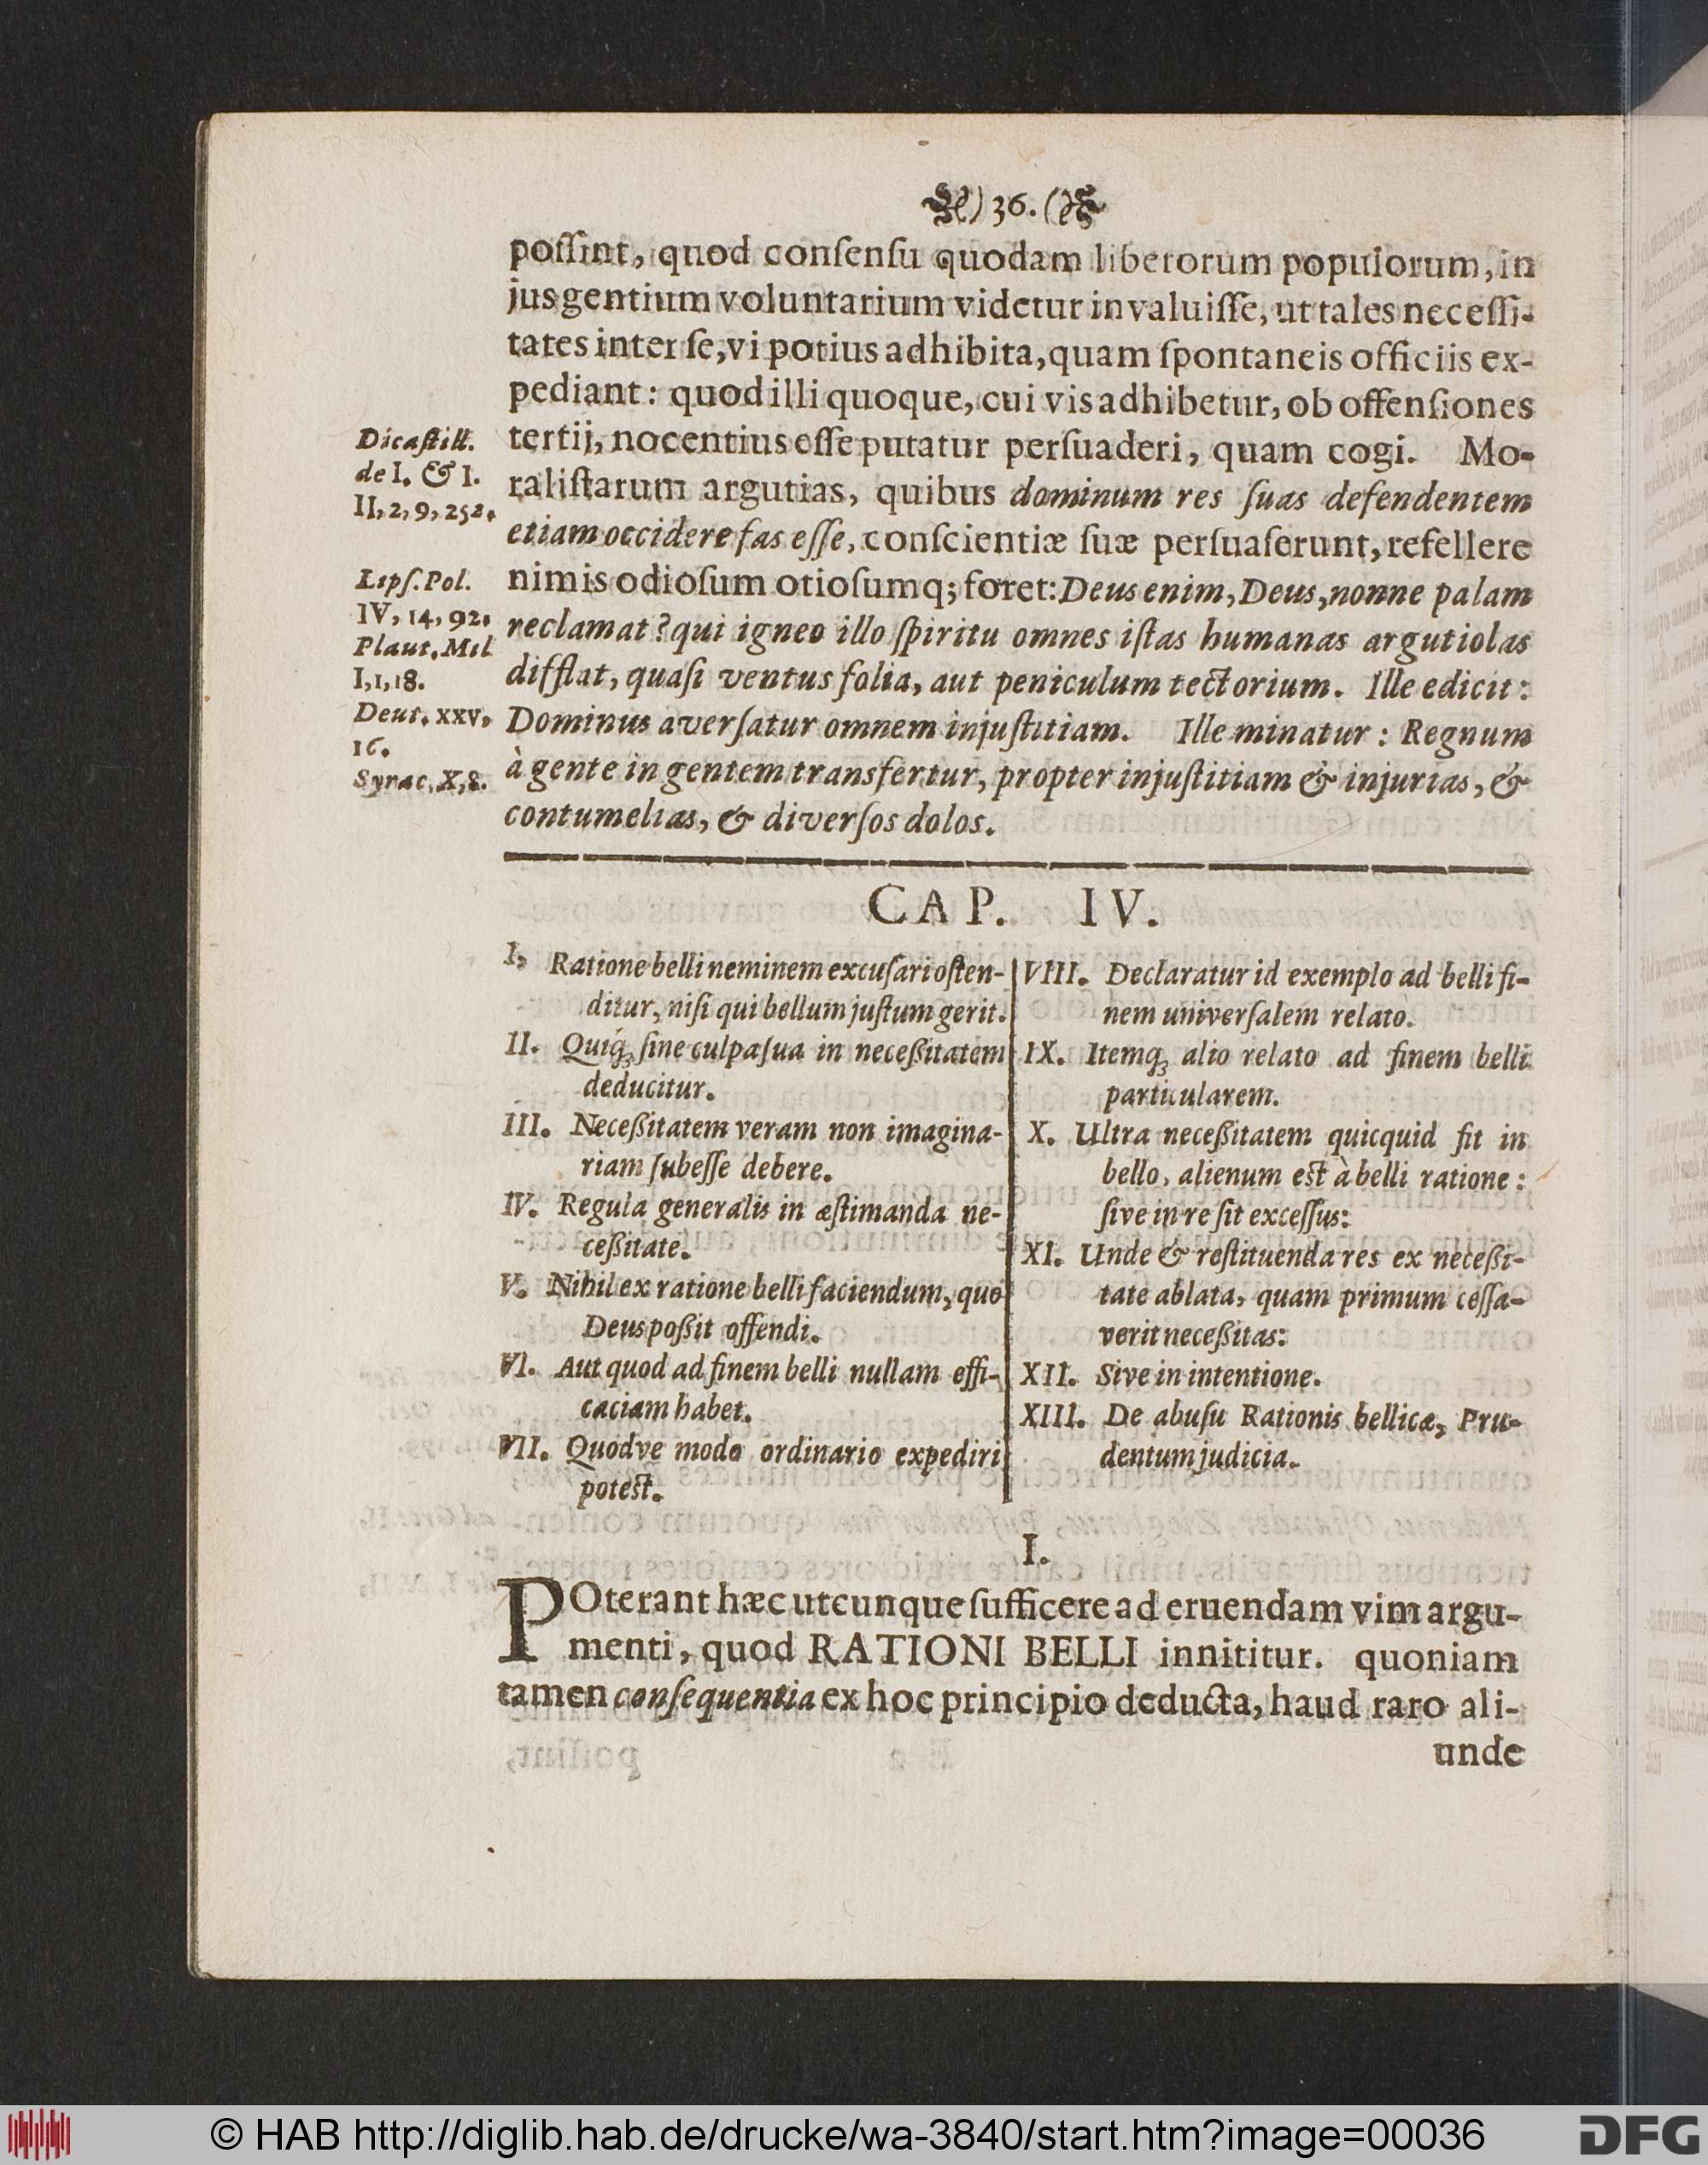 ) 36. (
poſſint, quod conſenſu quodam liberorum populorum, in
jus gentium voluntarium videtur invaluiſſe, ut tales neceſſi-
tates inter ſe, vi potius adhibita, quam ſpontaneis officiis ex-
pediant: quod illi quoque, cui vis adhibetur, ob offenſiones
tertij, nocentius eſſe putatur perſuaderi, quam cogi. Mo-
raliſtarum argutias, quibus dominum res ſuas defendentem
etiam occidere fas eſſe, conſcientiæ ſuæ perſuaſerunt, refellere
nimis odioſum otioſumq; foret: Deus enim, Deus, nonne palam
reclamat? qui igneo illo ſpiritu omnes iſtas humanas argutiolas
difflat, quaſi ventus folia, aut peniculum tectorium. Ille edicit:
Dominus averſatur omnem injuſtitiam. Ille minatur: Regnum
à gente in gentem transfertur, propter injuſtitiam & injurias, &
contumelias, & diverſos dolos.
Dicaſtill.
de I. & I.
II, 2, 9, 252.
Lipſ. Pol.
IV, 14, 92.
Plaut. Mil
I, 1, 18.
Deut. XXV,
16.
Syrac. X, 8.
CAP. IV.
I, Ratione belli neminem excuſari oſten-
ditur, niſi qui bellum juſtum gerit.
II. Quiq́; ſine culpa ſua in neceßitatem
deducitur.
III. Neceßitatem veram non imagina-
riam ſubeſſe debere.
IV. Regula generalis in æſtimanda ne-
ceßitate.
V. Nihil ex ratione belli faciendum, quo
Deus poßit offendi.
VI. Aut quod ad finem belli nullam effi-
caciam habet.
VII. Quodve modo ordinario expediri
poteſt.
VIII. Declaratur id exemplo ad belli fi-
nem univerſalem relato.
IX. Itemq; alio relato ad finem belli
particularem.
X. Ultra neceßitatem quicquid fit in
bello, alienum eſt à belli ratione:
ſive in re ſit exceſſus:
XI. Unde & reſtituenda res ex neceßi-
tate ablata, quam primum ceſſa-
verit neceßitas:
XII. Sive in intentione.
XIII. De abuſu Rationis bellicæ, Pru-
dentum judicia.
I.
POterant hæc utcunque ſufficere ad eruendam vim argu-
menti, quod RATIONI BELLI innititur. quoniam
tamen conſequentia ex hoc principio deducta, haud raro ali-
unde
© HAB http://diglib.hab.de/drucke/wa-3840/start.htm?image=00036
DFG